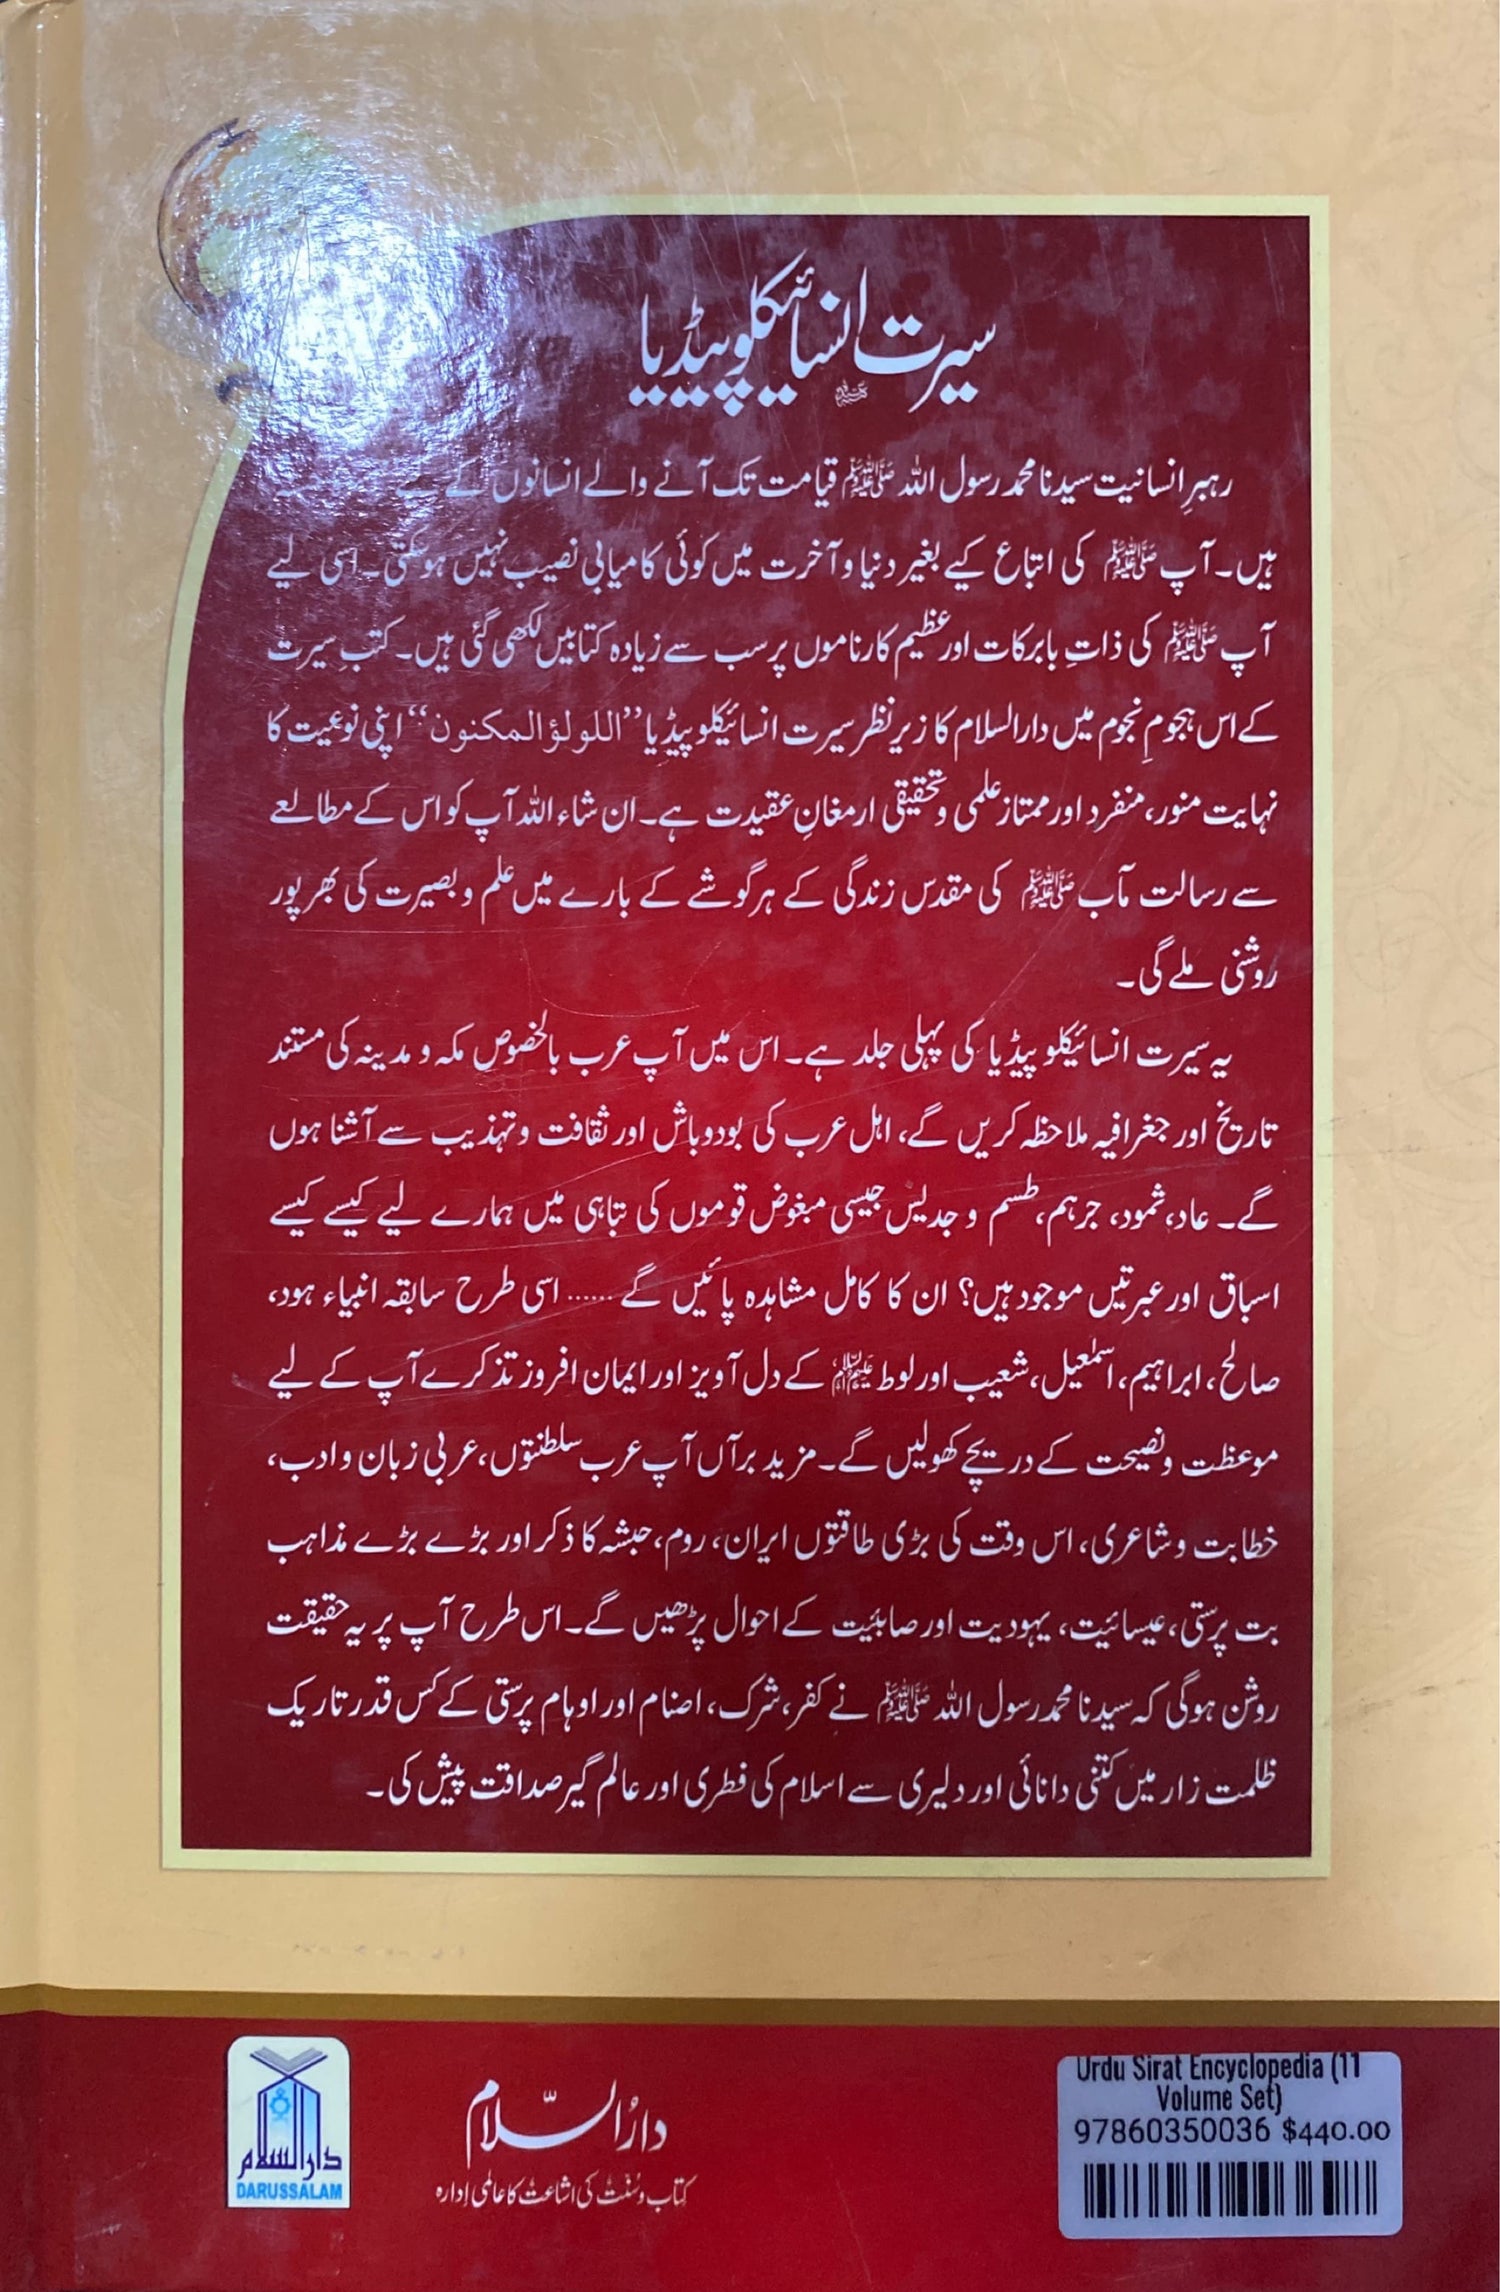 سیرت انسائیکلوپیڈیا
ﷺ
رہبرِ انسانیت سیدنا محمد رسول اللہ ﷺ قیامت تک آنے والے انسانوں کے
ہیں۔ آپ ﷺ کی اتباع کیے بغیر دنیا و آخرت میں کوئی کامیابی نصیب نہیں ہوسکتی۔ اسی لیے
آپ ﷺ کی ذاتِ بابرکات اور عظیم کارناموں پر سب سے زیادہ کتابیں لکھی گئی ہیں۔ کتبِ سیرت
کے اس ہجومِ نجوم میں دارالسلام کا زیرِ نظر سیرت انسائیکلوپیڈیا ”اللولؤ المکنون“ اپنی نوعیت کا
نہایت منور، منفرد اور ممتاز علمی و تحقیقی ارمغانِ عقیدت ہے۔ ان شاء اللہ آپ کو اس کے مطالعے
سے رسالت مآب ﷺ کی مقدس زندگی کے ہر گوشے کے بارے میں علم و بصیرت کی بھرپور
روشنی ملے گی۔
یہ سیرت انسائیکلوپیڈیا کی پہلی جلد ہے۔ اس میں آپ عرب بالخصوص مکہ و مدینہ کی مستند
تاریخ اور جغرافیہ ملاحظہ کریں گے، اہل عرب کی بودوباش اور ثقافت و تہذیب سے آشنا ہوں
گے۔ عاد، ثمود، جرہم، طسم و جدیس جیسی مبغوض قوموں کی تباہی میں ہمارے لیے کیسے کیسے
اسباق اور عبرتیں موجود ہیں؟ ان کا کامل مشاہدہ پائیں گے ...... اسی طرح سابقہ انبیاء ہود،
صالح، ابراہیم، اسمٰعیل، شعیب اور لوط علیہم السلام کے دل آویز اور ایمان افروز تذکرے آپ کے لیے
موعظت و نصیحت کے دریچے کھولیں گے۔ مزید برآں آپ عرب سلطنتوں، عربی زبان و ادب،
خطابت و شاعری، اس وقت کی بڑی طاقتوں ایران، روم، حبشہ کا ذکر اور بڑے بڑے مذاہب
بت پرستی، عیسائیت، یہودیت اور صابئیت کے احوال پڑھیں گے۔ اس طرح آپ پر یہ حقیقت
روشن ہوگی کہ سیدنا محمد رسول اللہ ﷺ نے کفر، شرک، اصنام اور اوہام پرستی کے کس قدر تاریک
ظلمت زار میں کتنی دانائی اور دلیری سے اسلام کی فطری اور عالم گیر صداقت پیش کی۔
دارالسلام
DARUSSALAM
دارُالسّلام
کتاب و سُنّت کی اشاعت کا عالمی اِدارہ
Urdu Sirat Encyclopedia (11
Volume Set)
97860350036 $440.00